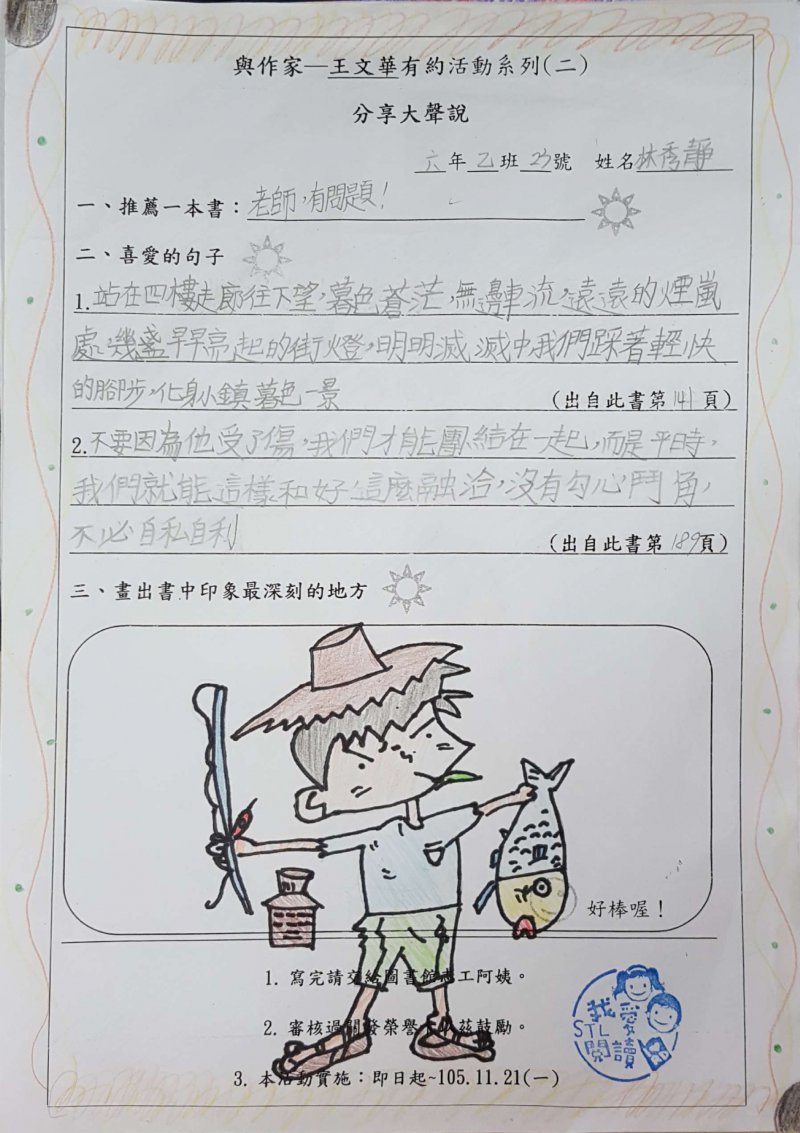 與作家—王文華有約活動系列(二)
分享大聲說
六年乙班23號 姓名林秀靜
一、推薦一本書：老師，有問題！
二、喜愛的句子
1.站在四樓走廊往下望，暮色蒼茫，無邊車流，遠遠的煙嵐
處，幾盞早早亮起的街燈，明明滅滅中，我們踩著輕快
的腳步，化身小鎮暮色一景
(出自此書第141頁)
2.不要因為他受了傷，我們才能團結在一起，而是平日時，
我們就能這樣和好，這麼融洽，沒有勾心鬥角，
不必自私自利
(出自此書第189頁)
三、畫出書中印象最深刻的地方
好棒喔！
1. 寫完請交給圖書館志工阿姨。
2. 審核過關發榮譽卡以茲鼓勵。
3. 本活動實施：即日起~105.11.21(一)
我愛
STL
閱讀